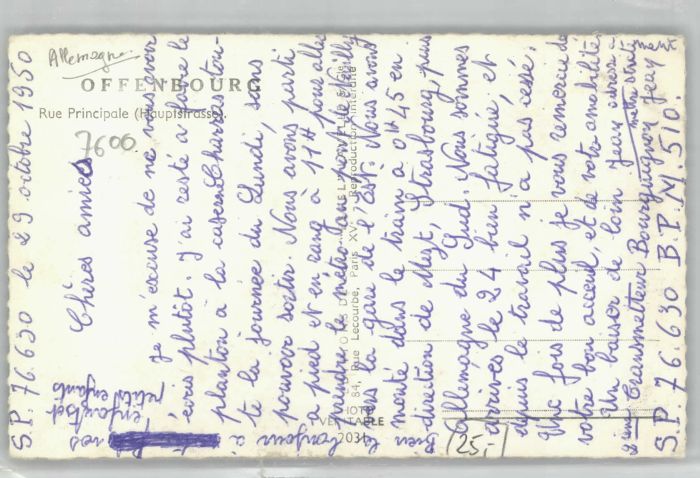 Allemagne
OFFENBOURG
Rue Principale (Hauptstrasse).
7600
S.P. 76.630 le 29 octobre 1950
Chères amies
je m'excuse de ne vous avoir
écris plutôt. J'ai resté à faire le
planton à la caserne Charras tou-
te la journée du Lundi, sans
pouvoir sortir. Nous avons parti
à pied et en rang à 11H pour aller
prendre le métro au pont de Neuilly
vers la gare de l'est. Nous avons
monté dans le train à 0H45 en
direction de Metz Strasbourg, puis
Allemagne du Sud. Nous sommes
arrivés le 24 bien fatigué, et
depuis le travail n'a pas cessé.
Une fois de plus je vous remercie de
votre bon acceuil, et de votre amabilité
Un baiser de loin Jean
2ième Transmetteur Bourguignon Jean
S.P. 76.630 B.P.M 510.
bien le bonjour à
vos
enfants et
petits enfants
84, Rue Lecourbe, Paris XVe
Reproduction interdite
VÉRITABLE
2031
25,-